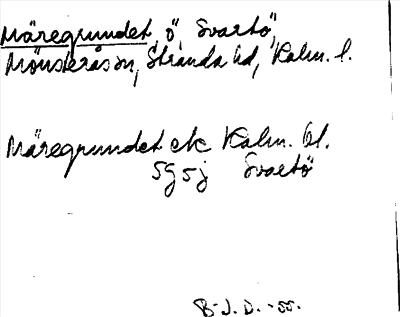 Märegrundet, ö, Svartö,
Mönsterås sn, Stranda hd, Kalm. l.
Märegrundet ek Kalm. bl.
5g5j Svartö
B-J.D. -55.